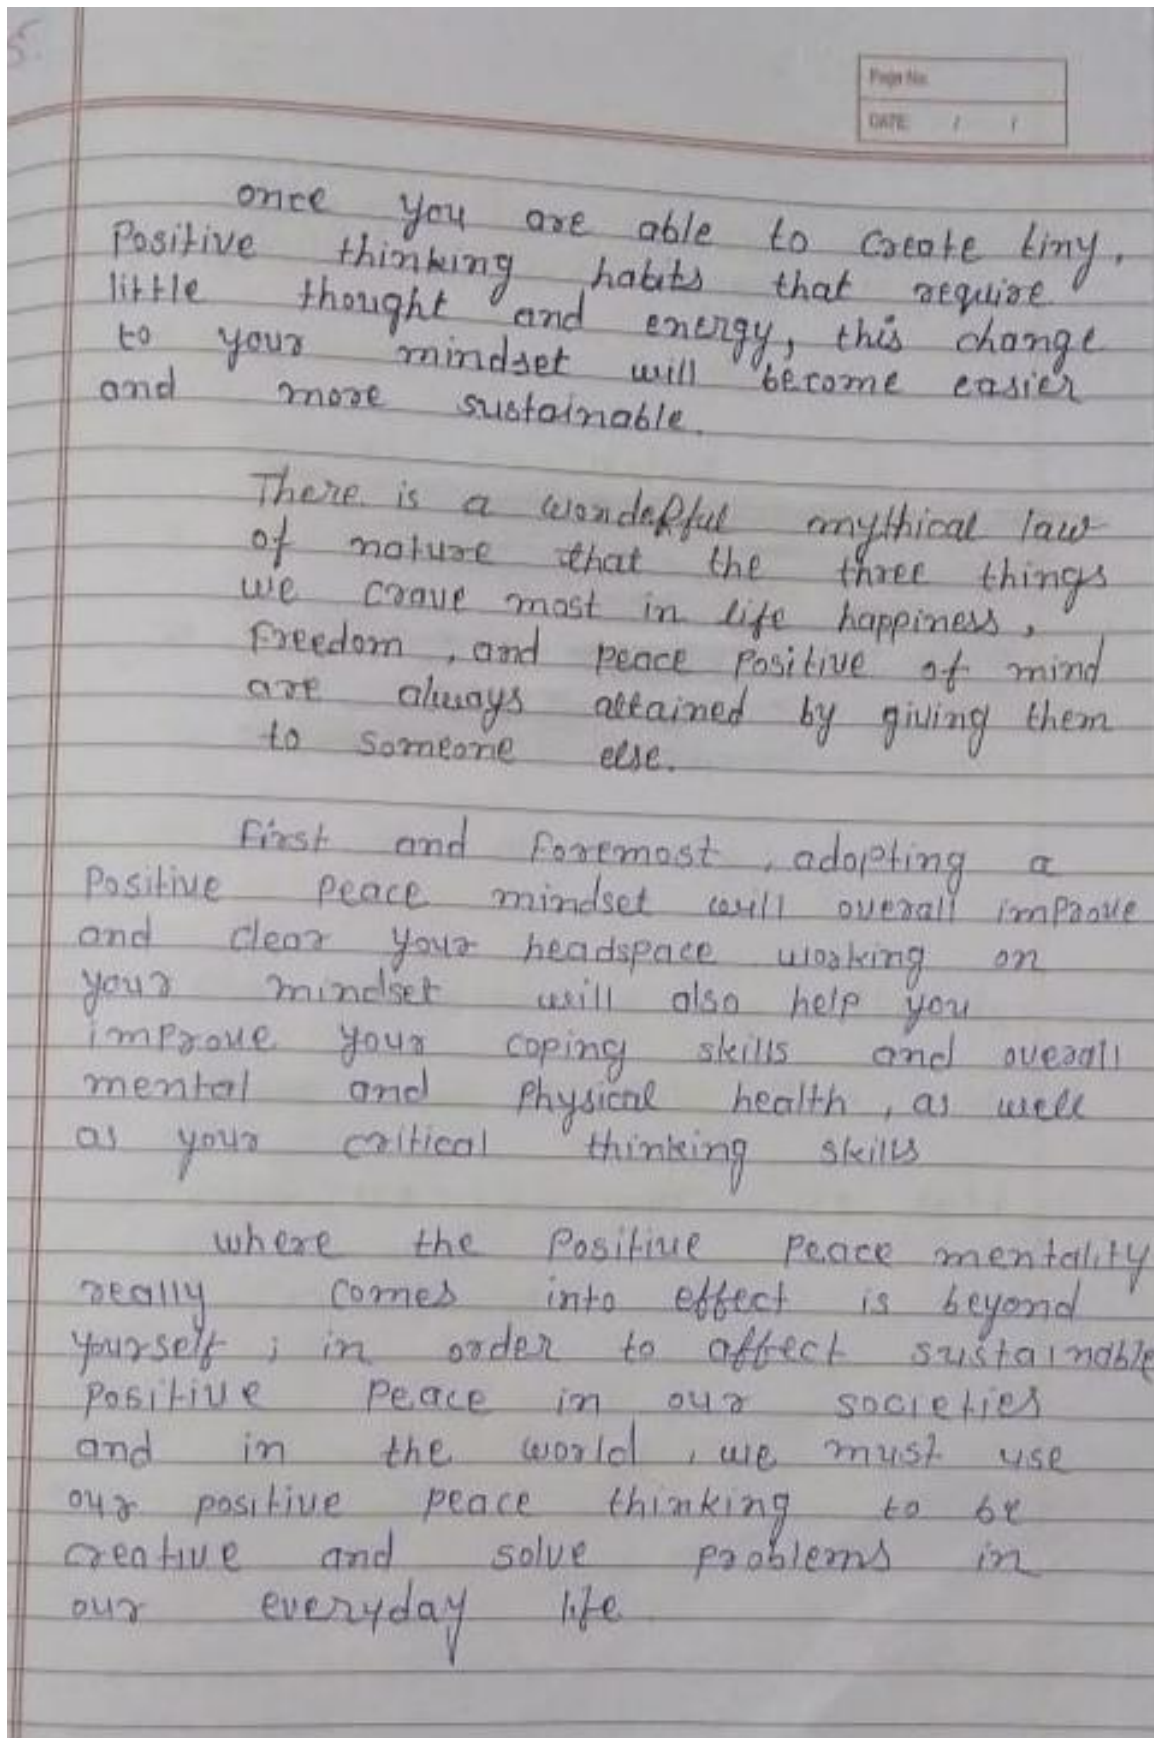 5.
Page No.
DATE / /
once you are able to create tiny,
Positive thinking habits that require
little thought and energy, this change
to your mindset will become easier
and more sustainable.
There is a wonderful mythical law
of nature that the three things
we crave most in life happiness,
Freedom, and peace Positive of mind
are always attained by giving them
to someone else.
First and Foremost, adopting a
Positive peace mindset will overall improve
and clear your headspace working on
your mindset will also help you
improve your coping skills and overall
mental and Physical health, as well
as your critical thinking skills
where the Positive Peace mentality
really comes into effect is beyond
yourself; in order to affect sustainable
Positive Peace in our societies
and in the world, we must use
our positive peace thinking to be
creative and solve problems in
our everyday life